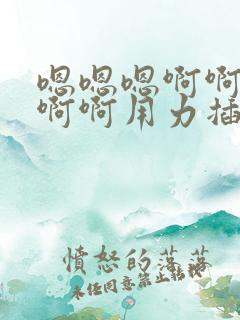 嗯嗯嗯啊啊
啊啊用力插
憤怒的落落
未经同意禁止转载